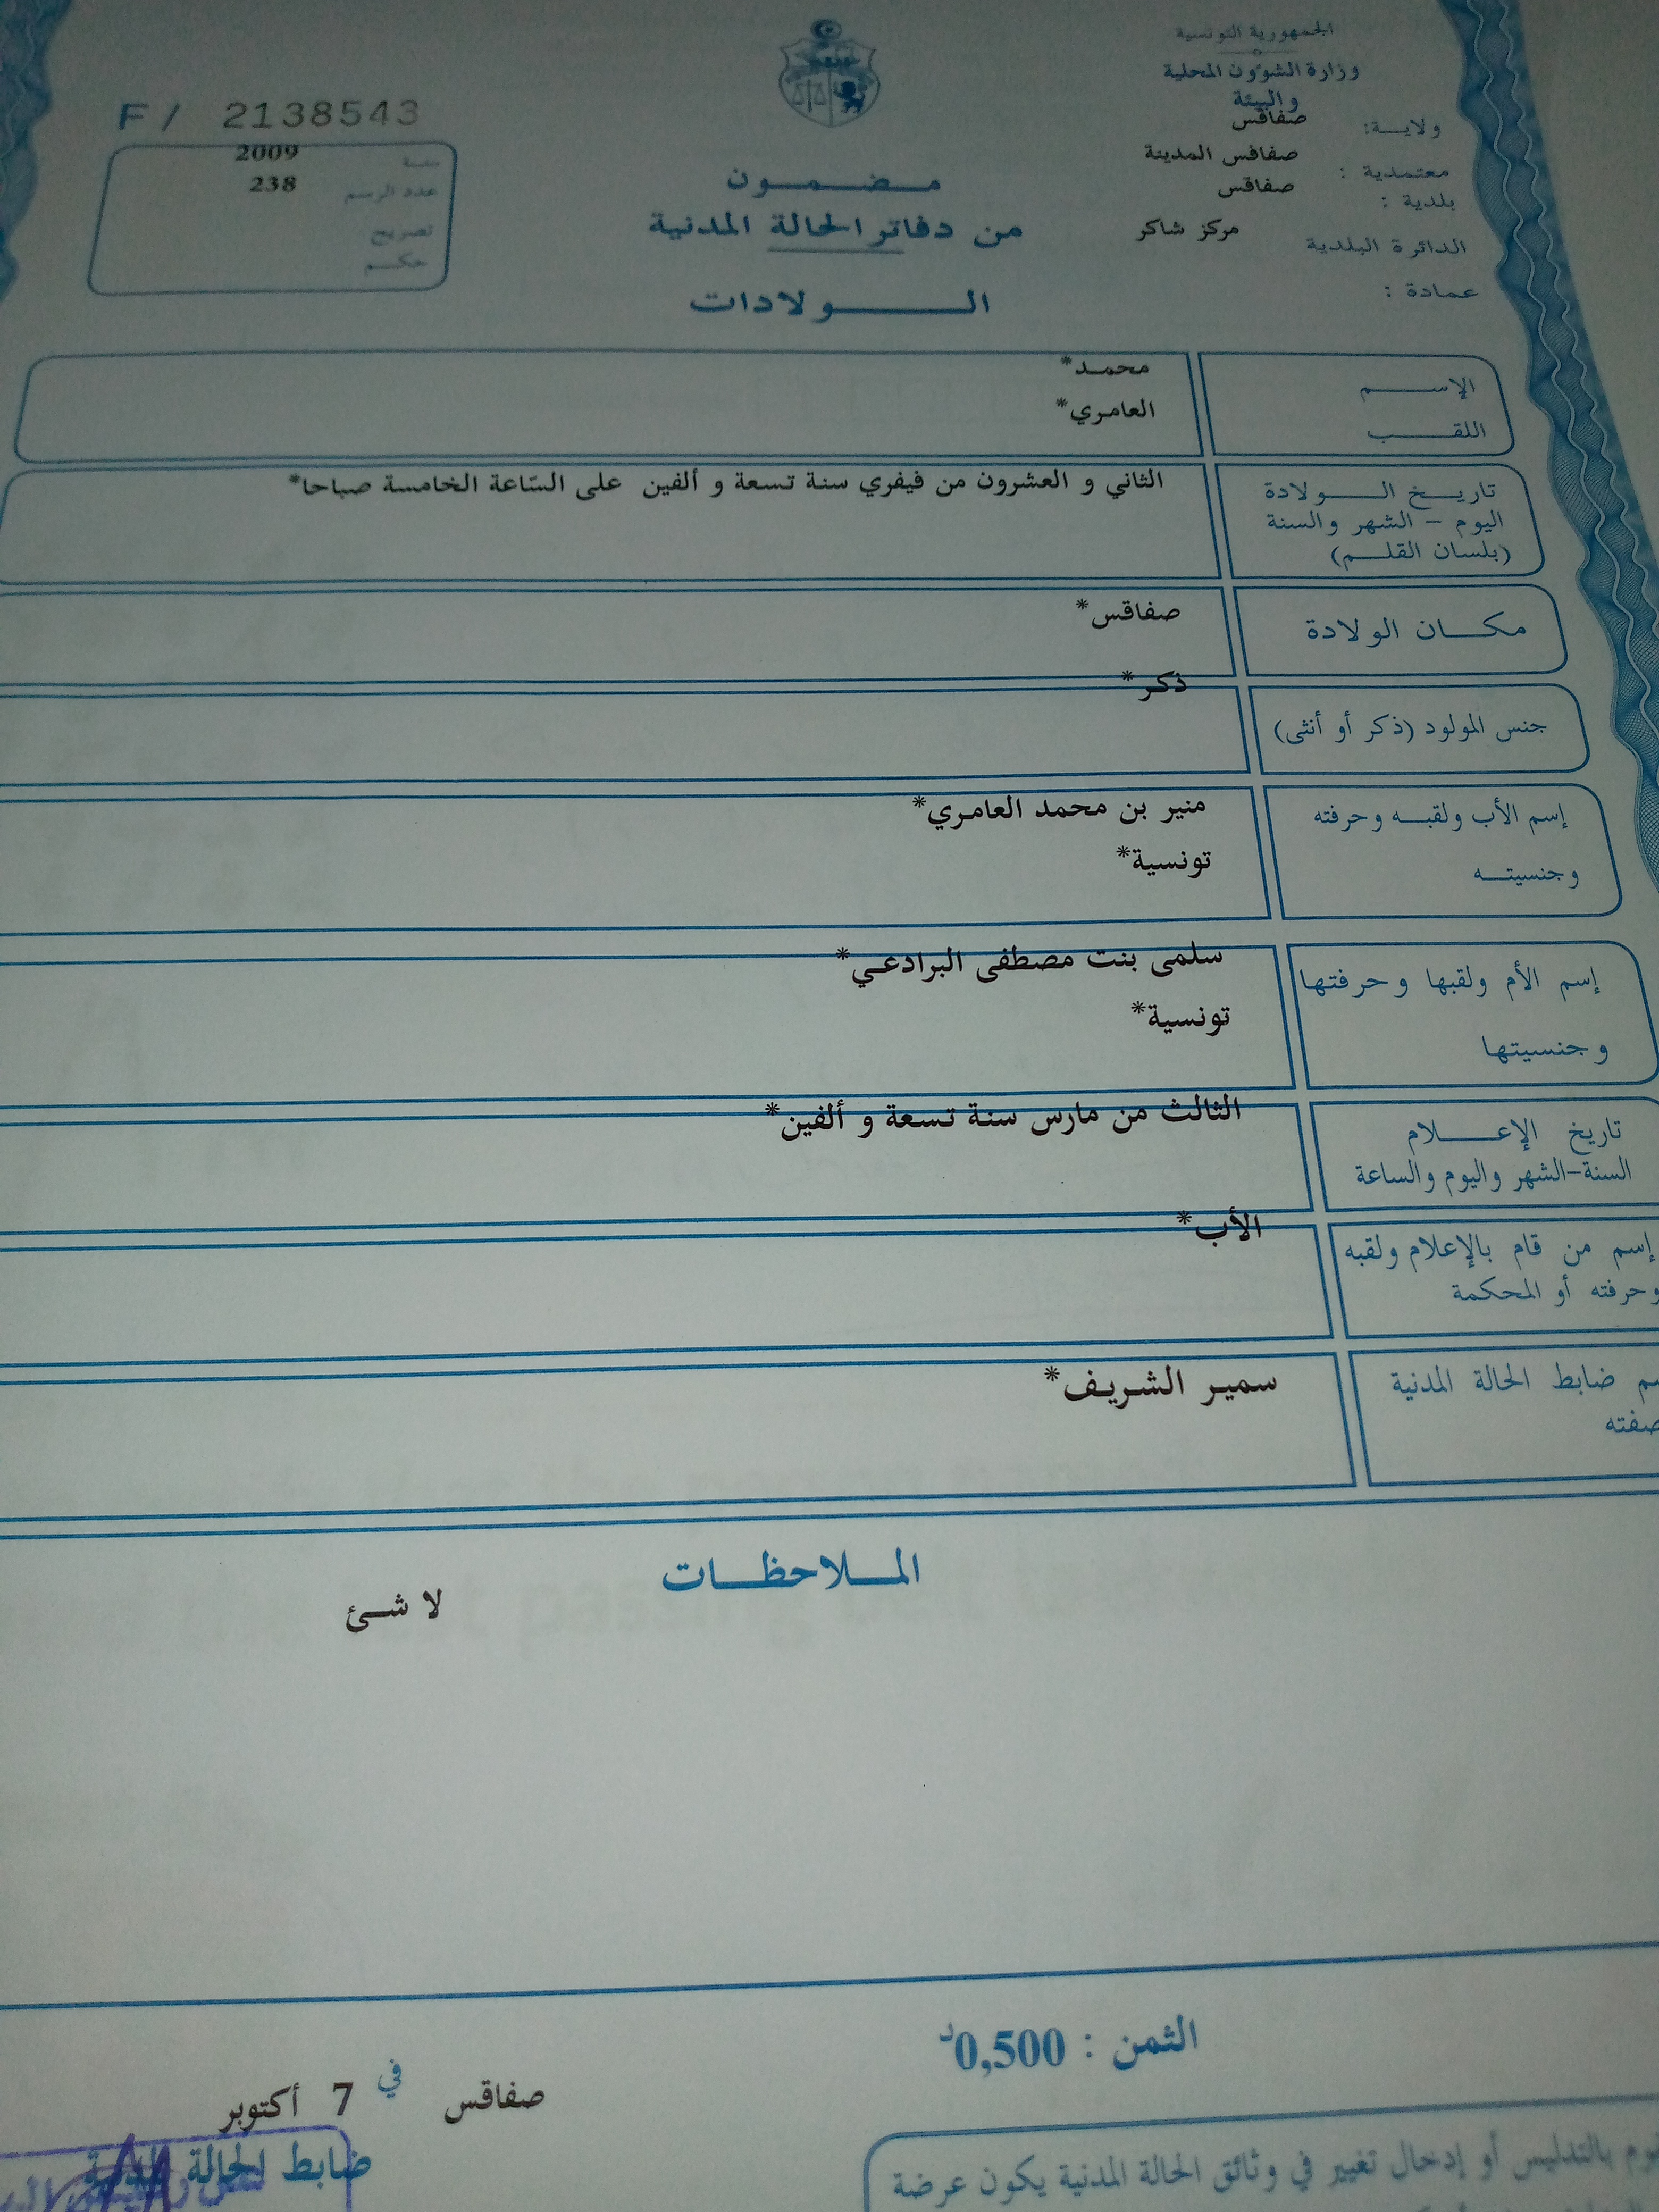 الجمهورية التونسية
وزارة الشؤون المحلية
والبيئة
ولاية: صفاقس
معتمدية : صفاقس المدينة
بلدية : صفاقس
الدائرة البلدية مركز شاكر
عمادة :
F / 2138543
سنة 2009
عدد الرسم 238
تصريح
حكم
مضمون
من دفاتر الحالة المدنية
الولادات
الإسم محمد*
اللقب العامري*
تاريخ الولادة الثاني و العشرون من فيفري سنة تسعة و ألفين على السّاعة الخامسة صباحا*
اليوم - الشهر والسنة
(بلسان القلم)
مكان الولادة صفاقس*
جنس المولود (ذكر أو أنثى) ذكر*
إسم الأب ولقبه وحرفته منير بن محمد العامري*
وجنسيته تونسية*
إسم الأم ولقبها وحرفتها سلمى بنت مصطفى البرادعي*
وجنسيتها تونسية*
تاريخ الإعلام الثالث من مارس سنة تسعة و ألفين*
السنة-الشهر واليوم والساعة
إسم من قام بالإعلام ولقبه الأب*
وحرفته أو المحكمة
ضابط الحالة المدنية سمير الشريف*
صفته
الملاحظات
لا شئ
الثمن : 0,500د
صفاقس في 7 أكتوبر
ضابط الحالة المدنية
بالتدليس أو إدخال تغيير في وثائق الحالة المدنية يكون عرضة